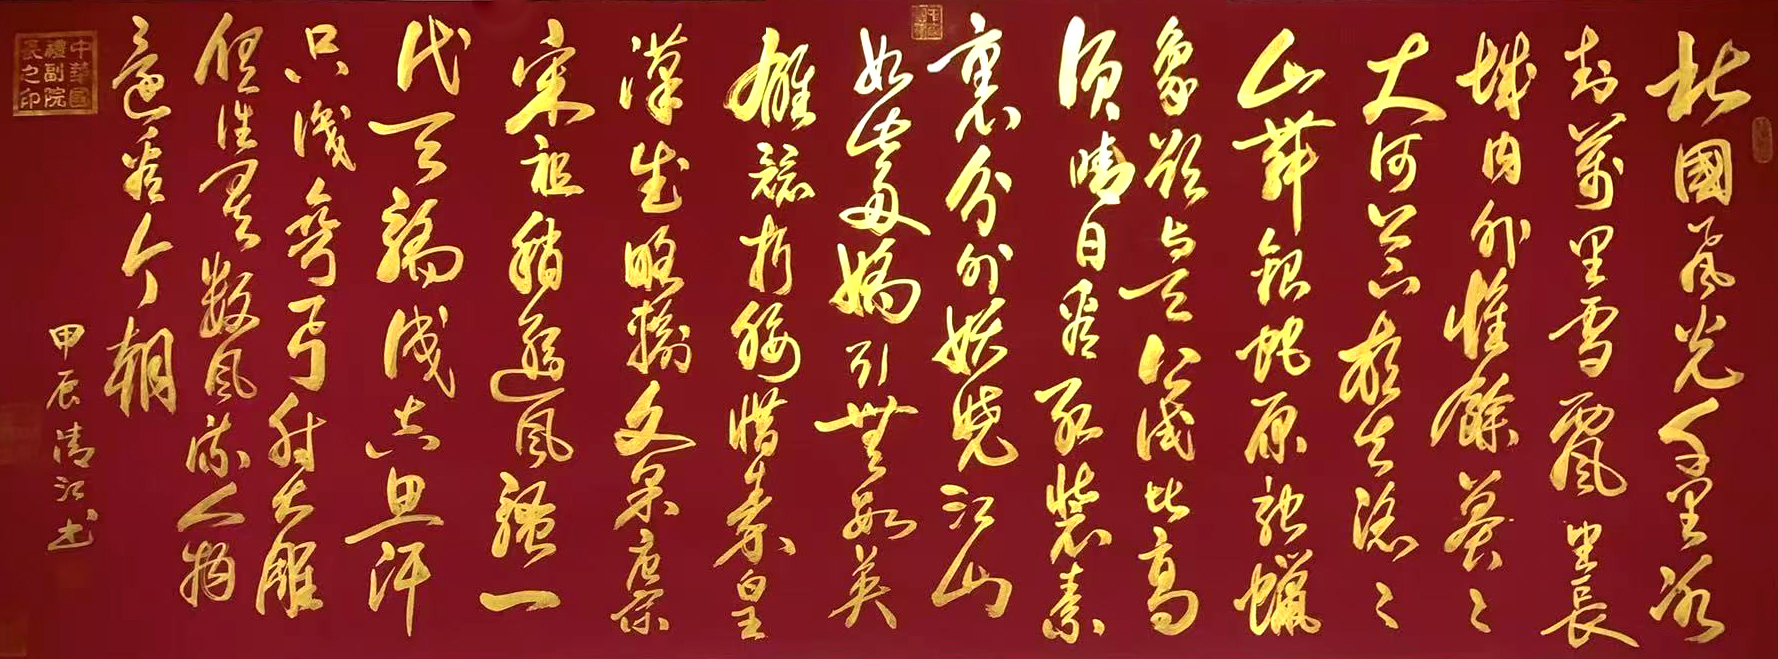 北國風光千里冰
封萬里雪飄望長
城內外惟餘莽〻
大河上下頓失滔〻
山舞銀蛇原馳蠟
象欲與天公試比高
須晴日看紅裝素
裹分外妖嬈江山
如此多嬌引無數英
雄競折腰惜秦皇
漢武略輸文采唐宗
宋祖稍遜風騷一
代天驕成吉思汗
只識彎弓射大雕
俱往矣數風流人物
還看今朝
甲辰清江书
中華國
禮副院
長之印